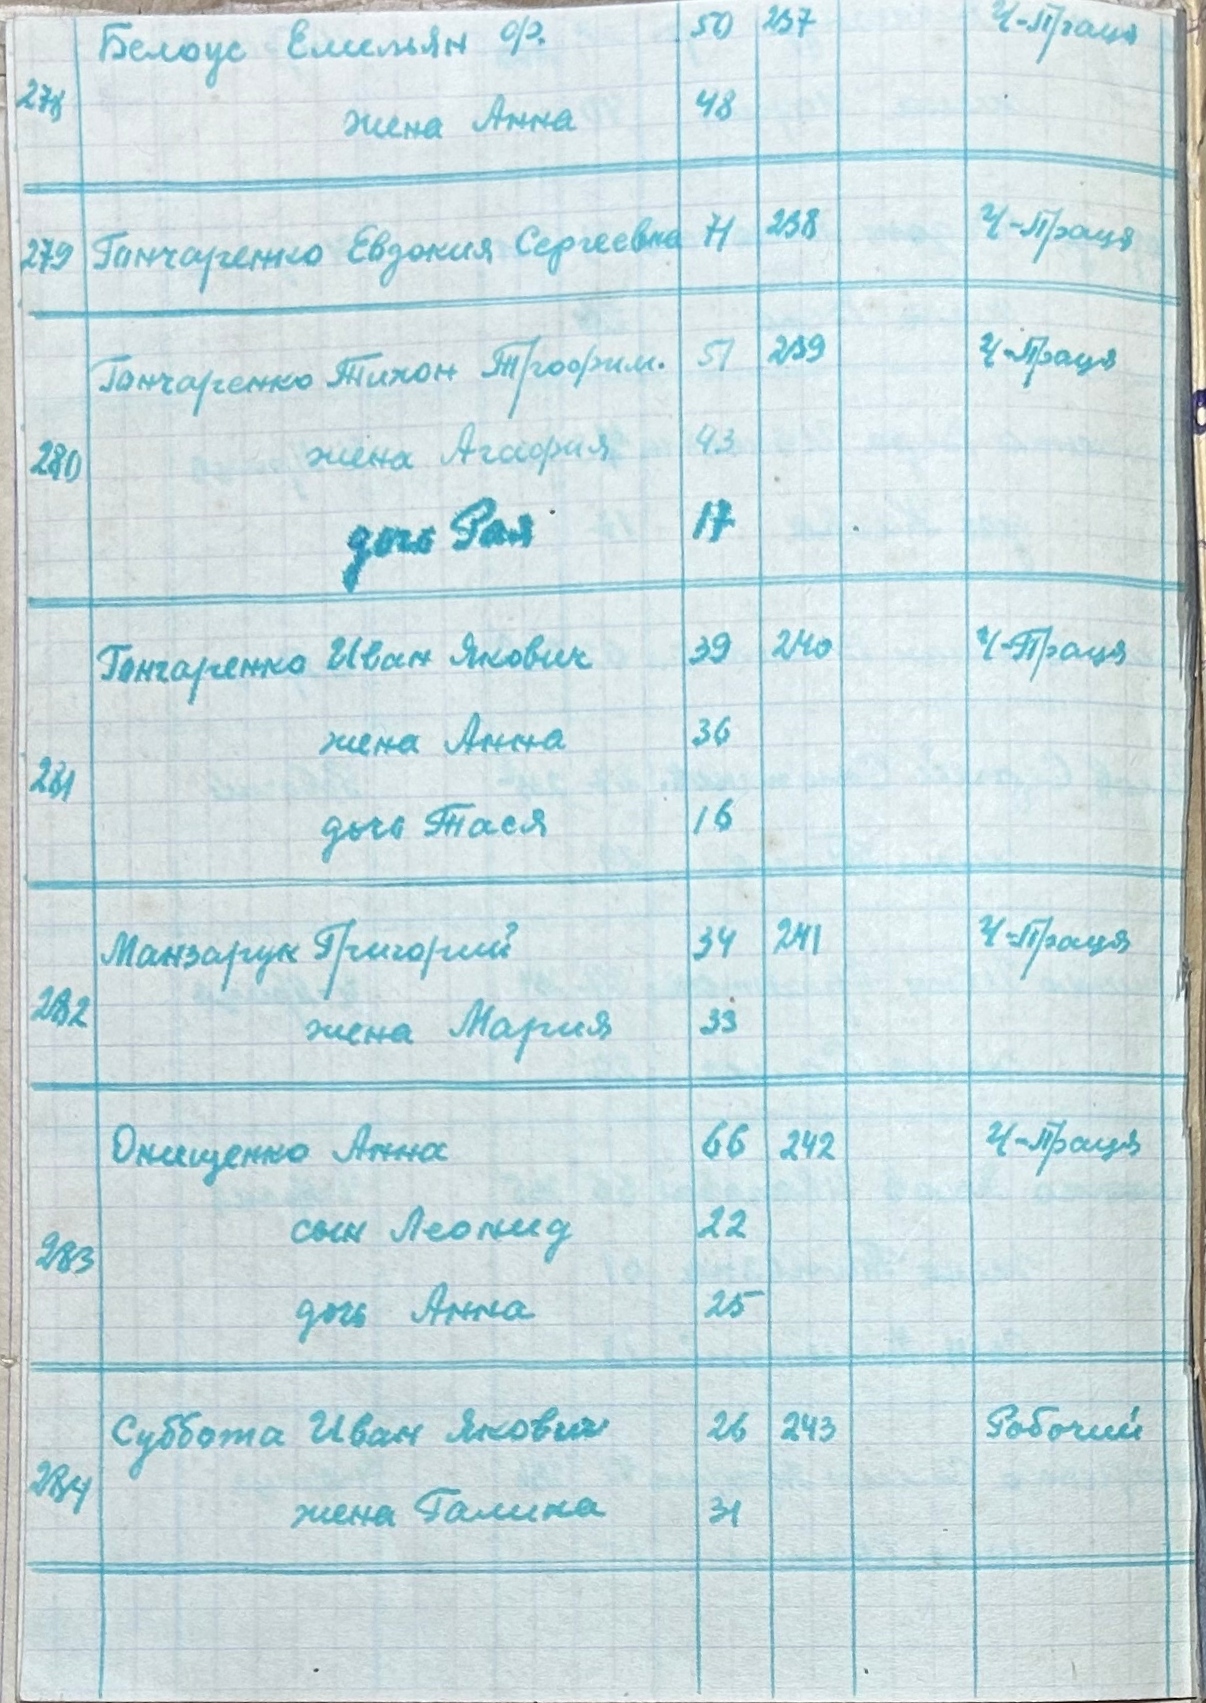 Белоус Емельян Ф. 50 237 Ч-Праця
278
жена Анна 48
279 Гончаренко Евдокия Сергеевна 71 238 Ч-Праця
Гончаренко Тихон Трофим. 51 239 Ч-Праця
280 жена Агафия 43
дочь Рая 17
Гончаренко Иван Якович 39 240 Ч-Праця
жена Анна 36
281
дочь Тася 16
Манзарук Григорий 34 241 Ч-Праця
282 жена Мария 33
Онищенко Анна 66 242 Ч-Праця
сын Леонид 22
283
дочь Анна 25
Суббота Иван Якович 26 243 Рабочий
284
жена Галина 31